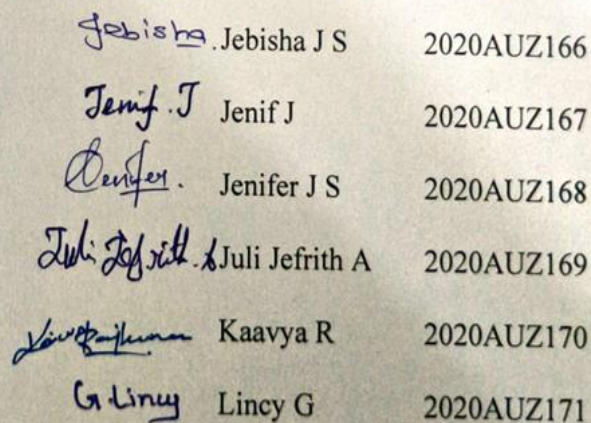 Jebisha. Jebisha J S 2020AUZ166
Jenif.J Jenif J 2020AUZ167
Jenifer. Jenifer J S 2020AUZ168
Juli Jefrith.A Juli Jefrith A 2020AUZ169
Kaavya R 2020AUZ170
G.Lincy Lincy G 2020AUZ171